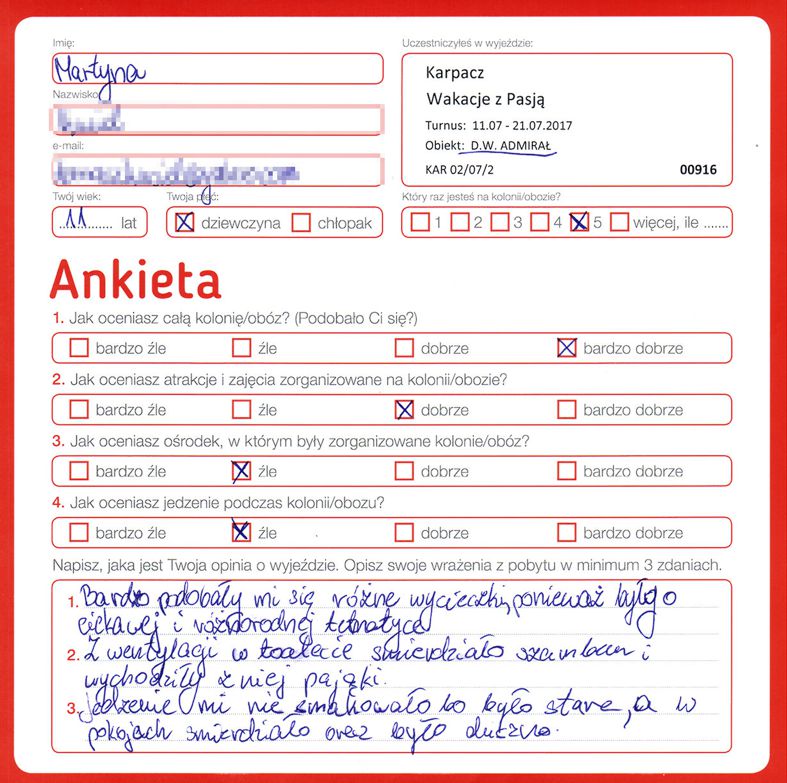 Imię:
Martyna
Nazwisko
e-mail:
Twój wiek:
11 lat
Twoja płeć:
dziewczyna chłopak
Uczestniczyłeś w wyjeździe:
Karpacz
Wakacje z Pasją
Turnus: 11.07 - 21.07.2017
Obiekt: D.W. ADMIRAŁ
KAR 02/07/2 00916
Który raz jesteś na kolonii/obozie?
1 2 3 4 5 więcej, ile .......
Ankieta
1. Jak oceniasz całą kolonię/obóz? (Podobało Ci się?)
bardzo źle źle dobrze bardzo dobrze
2. Jak oceniasz atrakcje i zajęcia zorganizowane na kolonii/obozie?
bardzo źle źle dobrze bardzo dobrze
3. Jak oceniasz ośrodek, w którym były zorganizowane kolonie/obóz?
bardzo źle źle dobrze bardzo dobrze
4. Jak oceniasz jedzenie podczas kolonii/obozu?
bardzo źle źle dobrze bardzo dobrze
Napisz, jaka jest Twoja opinia o wyjeździe. Opisz swoje wrażenia z pobytu w minimum 3 zdaniach.
1. Bardzo podobały mi się różne wycieczki, ponieważ były o
ciekawej i różnorodnej tematyce
2. Z wentylacji w toalecie śmierdziało szambem i
wychodziły z niej pająki.
3. Jedzenie mi nie smakowało bo było stare, a w
pokojach śmierdziało oraz było duszno.